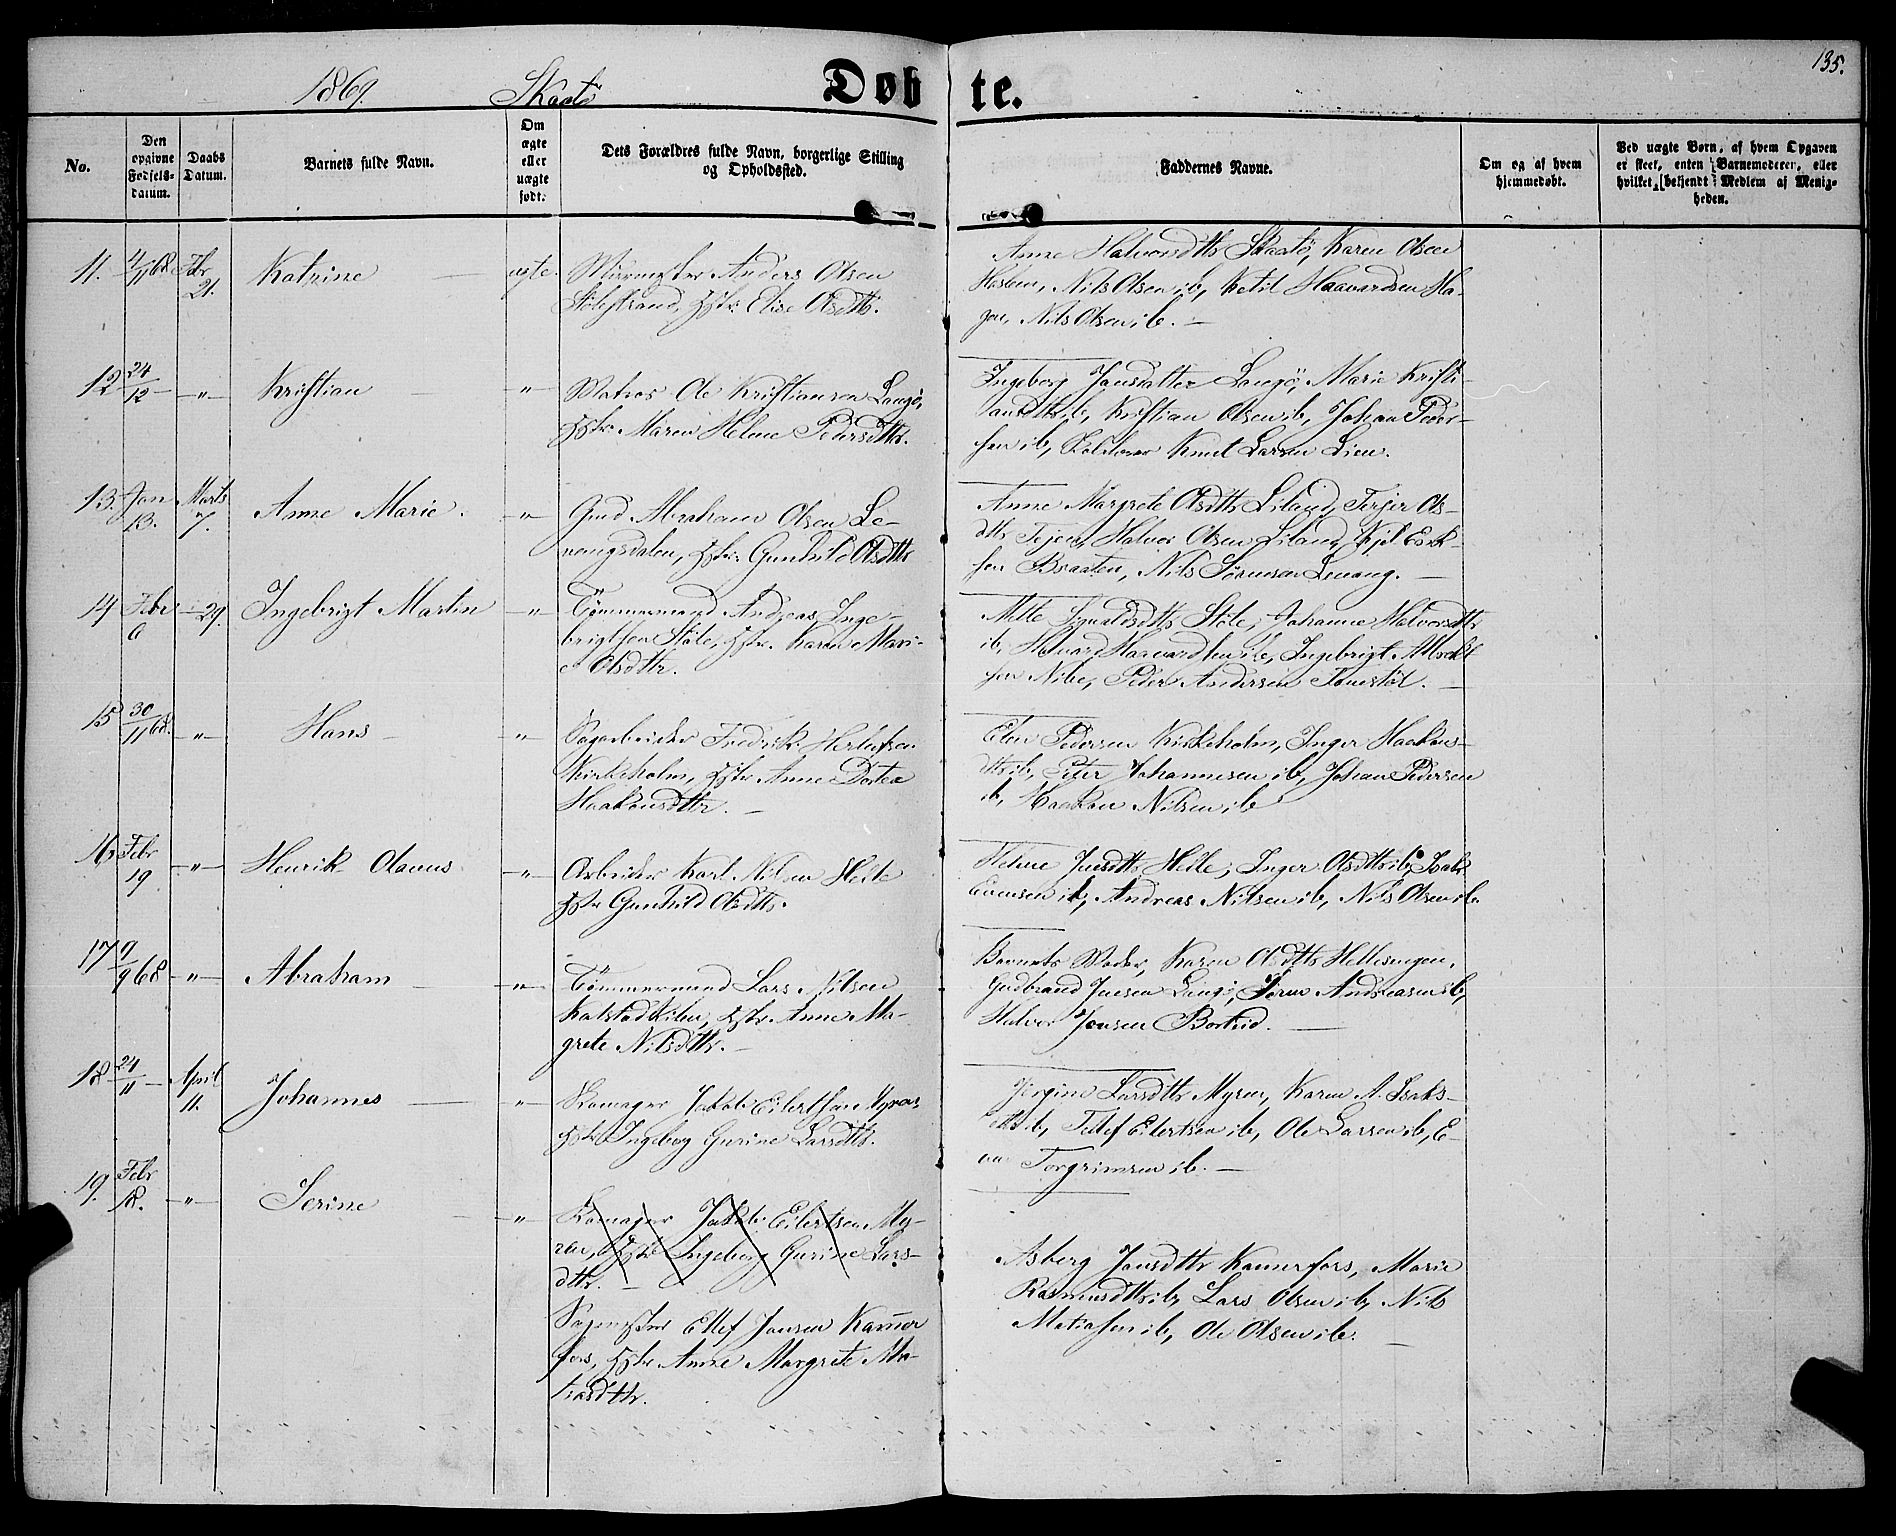 135.
1869. Skaatö
Døbte.
No.
Den opgivne Fødsels-datum.
Daabs Datum.
Barnets fulde Navn.
Om ægte eller uægte født.
Dets Forældres fulde Navn, borgerlige Stilling og Opholdssted.
Faddernes Navne.
Om og af hvem hjemmedøbt.
Ved uægte Børn, af hvem Opgaven er skeet, enten Barnemoderen, eller hvilket betjendt Medlem af Menigheden.
11. 4/11 68 Febr 21. Katrine — ægte. Murmester Anders Olsen
Stölestrand, Hstr: Elise Olsdttr.
Anne Halvorsdttr Skaatö, Karen Olsen
Haslum, Nils Olsen ib, Ketil Haavardsen Ha-
gen, Nils Olsen ib. —
12 24/12 — -"- Kristian — " Matros Ole Kristiansen Langö,
Hstr: Maren Helene Pedersdttr.
Ingeborg Jensdatter Langö, Marie Kristi-
ansdttr ib, Kristian Olsen ib, Johan Peder-
sen ib, Knut Larsen Lien.
13. Jan 13. Marts 7. Anne Marie. -"- Grd Abraham Olsen Le-
vangsdalen, Hstr: Gunhild Olsdttr
Anne Margrete Olsdttr Eiland, Terjer Ols-
dttr Tejen, Halvor Olsen Eiland, Kjel Erik-
sen Braaten, Nils Sörensen Levang. —
14 Febr 6 — 29. Ingebrigt Martin -"- Tömmermand Andreas Inge-
brigtsen Stöle, Hstr. Karen Mari-
e Olsdttr.
Mette Stöle, Johanne Halvorsdttr
ib, Halvard Havardsen ib, Ingebrigt
sen Nibe, Peder Andersen —
15 30/11 68. -"- Hans — -"- Sagarbeider Fredrik Herlofsen
Kirkeholm, Hstr Anne Dortea
Haakonsdttr. —
Elen Pedersen Kirkeholm, Inger Haakons-
dttr ib, Peter Johannesen ib, Johan Pedersen
ib, Haakon Nilsen ib
16 Febr 19 -"- Henrik Olavus -"- Arbeider Karl Nilsen Helle
Hstr Gunhild Olsdttr.
Helene Jensdttr Helle, Inger Olsdttr ib, Isak
Evensen ib, Andreas Nilsen ib, Nils Olsen ib.
17 9/9 68 -"- Abraham — -"- Tömmermand Lars Nilsen
Kalstadkilen, Hstr. Anne Ma-
grete Nilsdttr. —
Barnets Moder, Karen Olsdttr Hellesengen,
Gudbrand Jensen Langö, Sören Andreasen ib,
Halvor Jensen —
18 24/11 — April 11. Johannes — -"- Skomager Jakob Eilertsen Myren
Hstr Ingeborg Gurine Larsdttr.
Jörgine Larsdttr Myren, Karen A. Isaks-
dttr ib, Tellef Eilertsen ib, Ole Larsen ib, E-
ven Torgrimsen ib. —
19. Febr 18. -"- Serine — -"- Skomager Jakob Eilertsen My-
ren, Hstr Ingeborg Gurine Lars-
dttr. —
Sagmester Ellef Jansen Kammer
fors, Hstr Anne Margrete Ma-
tiasdttr.
Asberg Jansdttr Kamerfors, Marie
Rasmusdttr ib, Lars Olsen ib, Nils
Matiasen ib, Ole Olsen ib. —